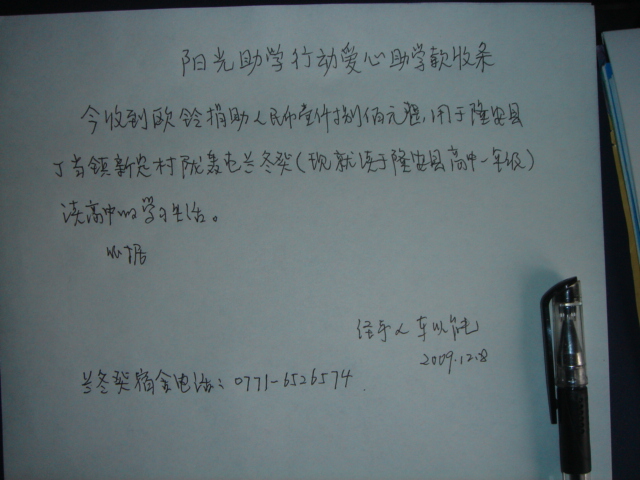 阳光助学行动爱心助学款收条
今收到欧铃捐助人民币壹仟捌佰元整,用于隆安县
丁当镇新定村陇轰屯兰冬葵(现就读于隆安县高中一年级)
读高中的学习生活。
此据
经手人 车以能
2009.12.8
兰冬葵宿舍电话:0771-6526574